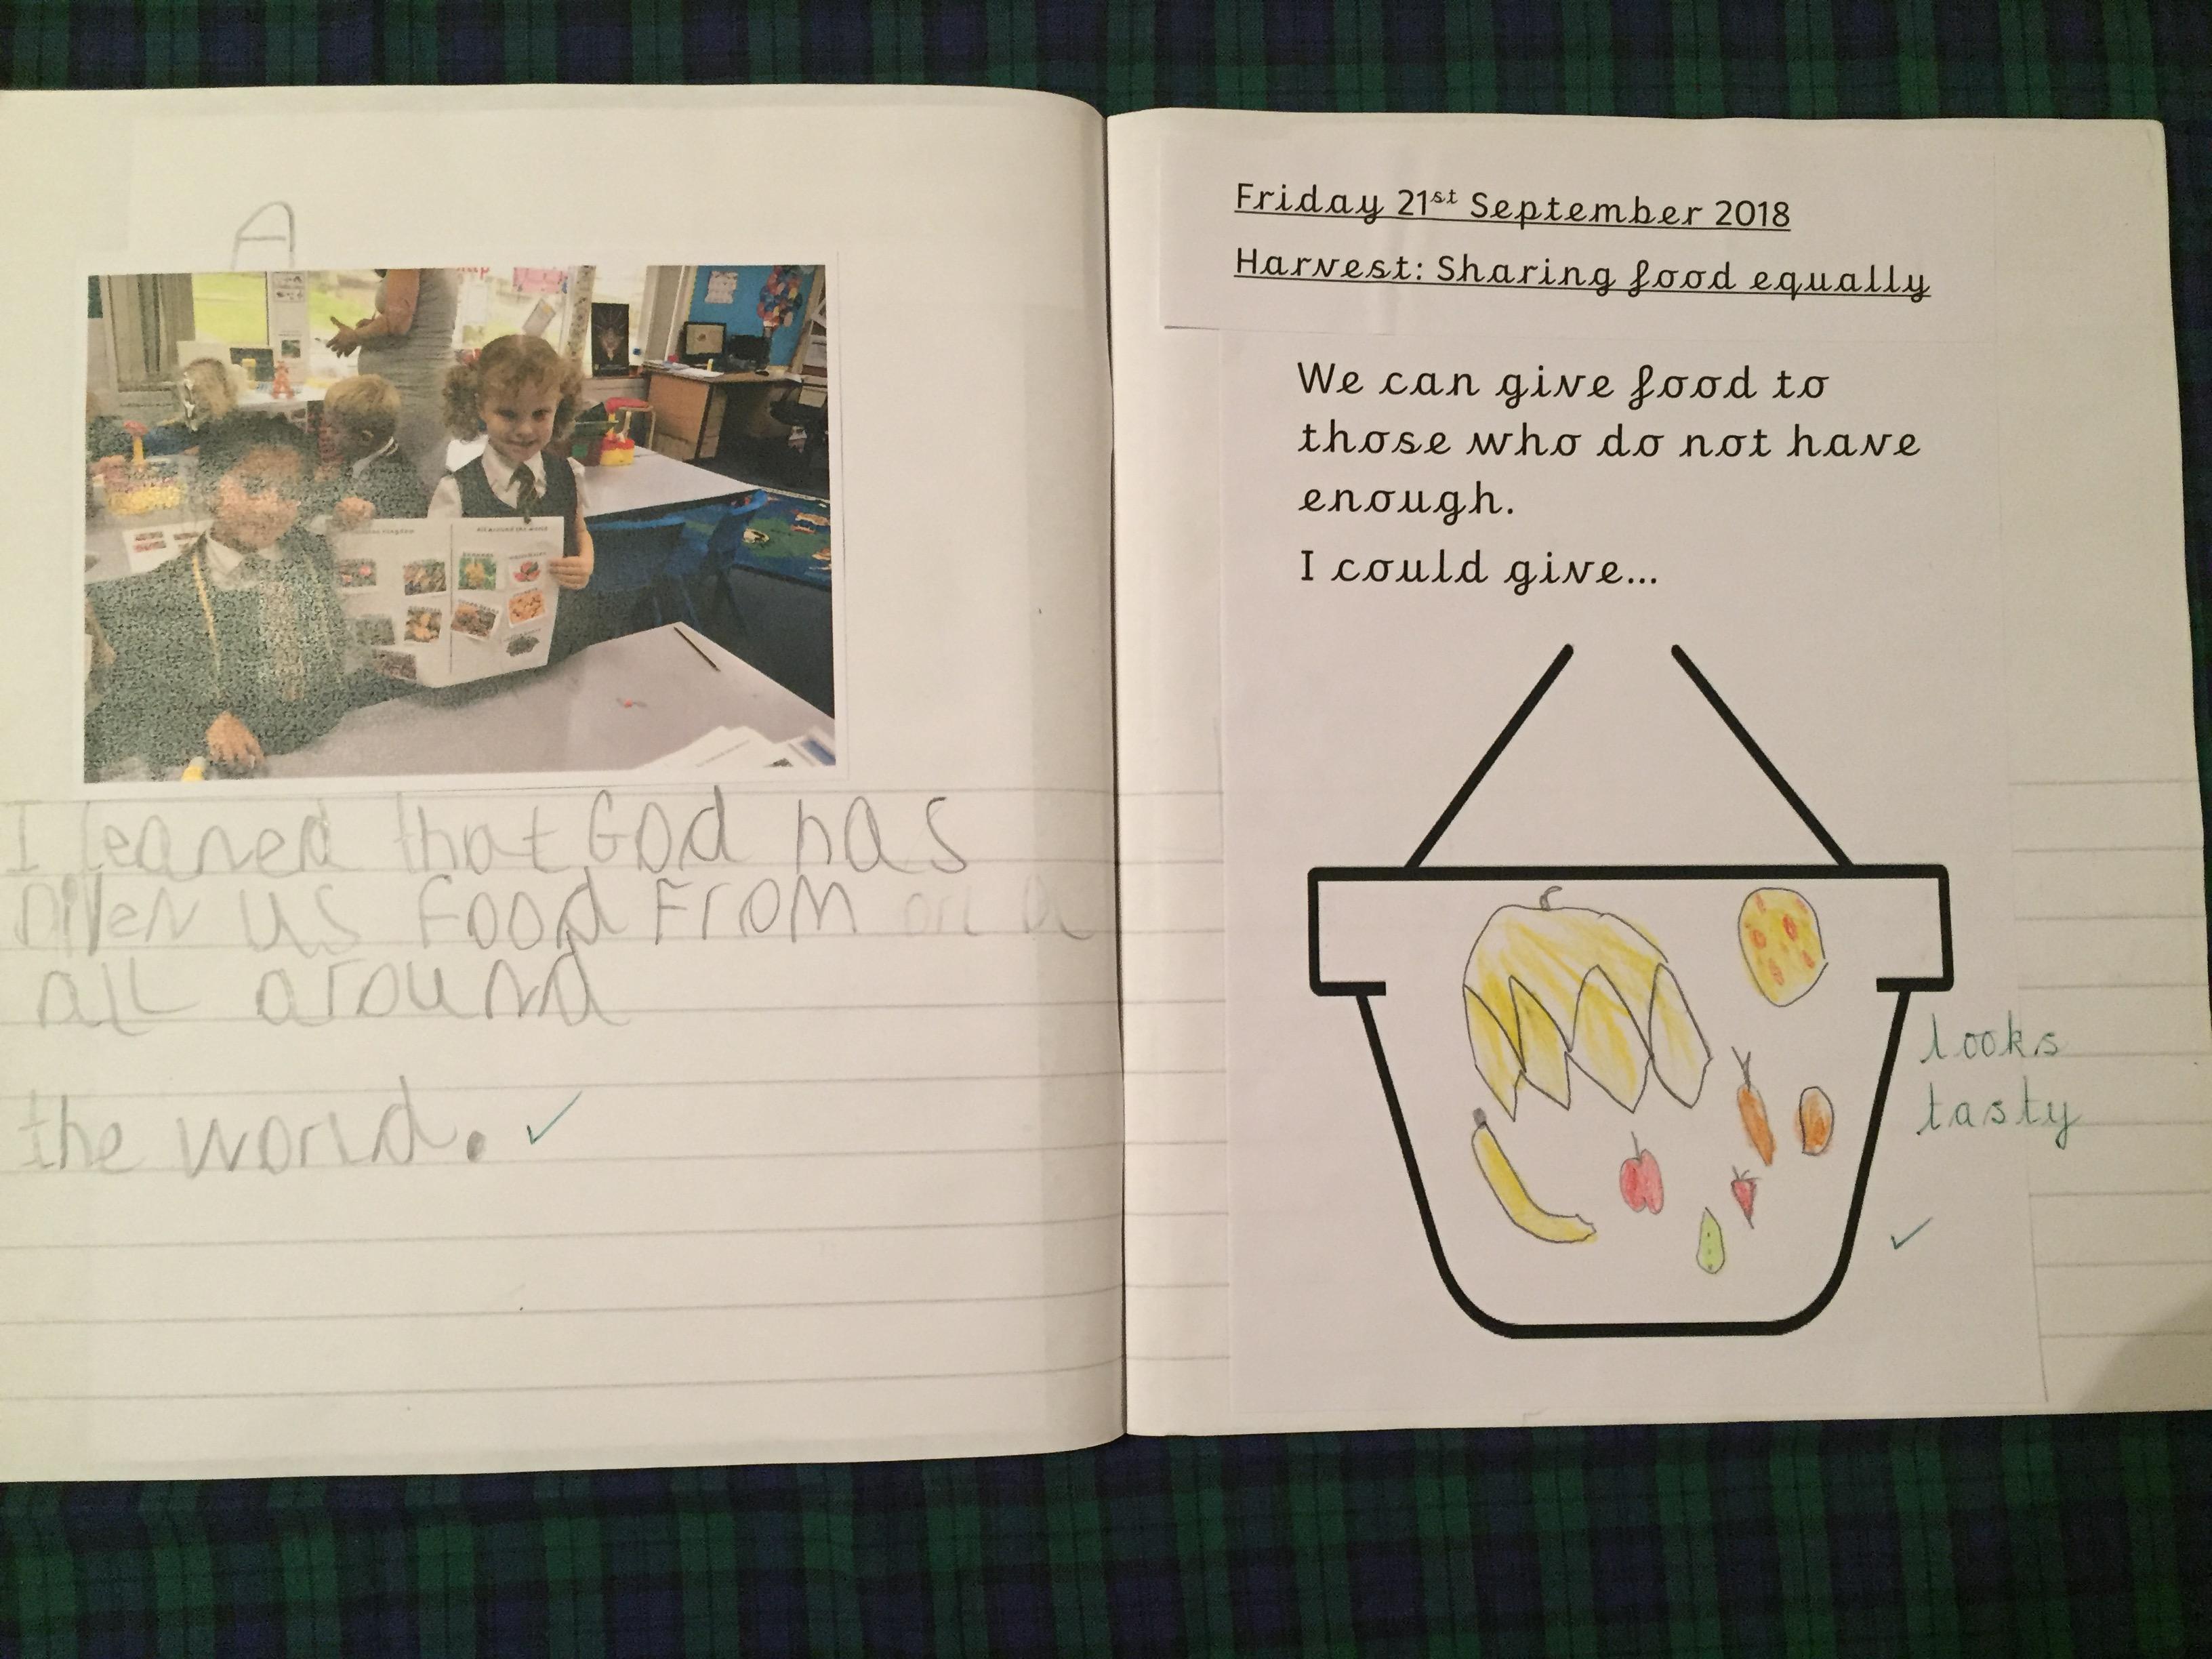 A
All around the world
I leaned that God has
given us Food From
all around
the world.
Friday 21st September 2018
Harvest: Sharing food equally
We can give food to
those who do not have
enough.
I could give...
looks
tasty